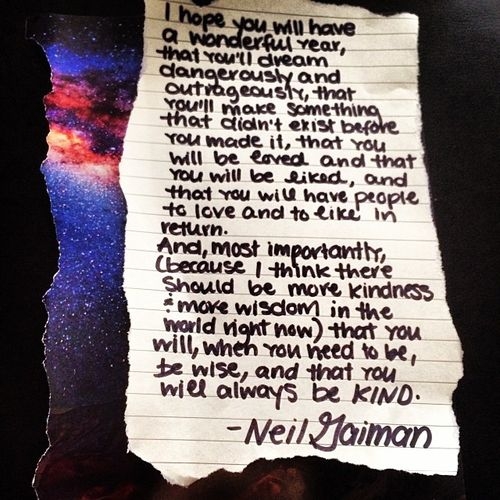 I hope you will have
a wonderful year,
that you'll dream
dangerously and
outrageously, that
you'll make something
that didn't exist before
you made it, that you
will be loved and that
you will be liked, and
that you will have people
to love and to like in
return.
And, most importantly,
(because I think there
should be more kindness
& more wisdom in the
world right now) that you
will, when you need to be,
be wise, and that you
will always be KIND.
-Neil Gaiman